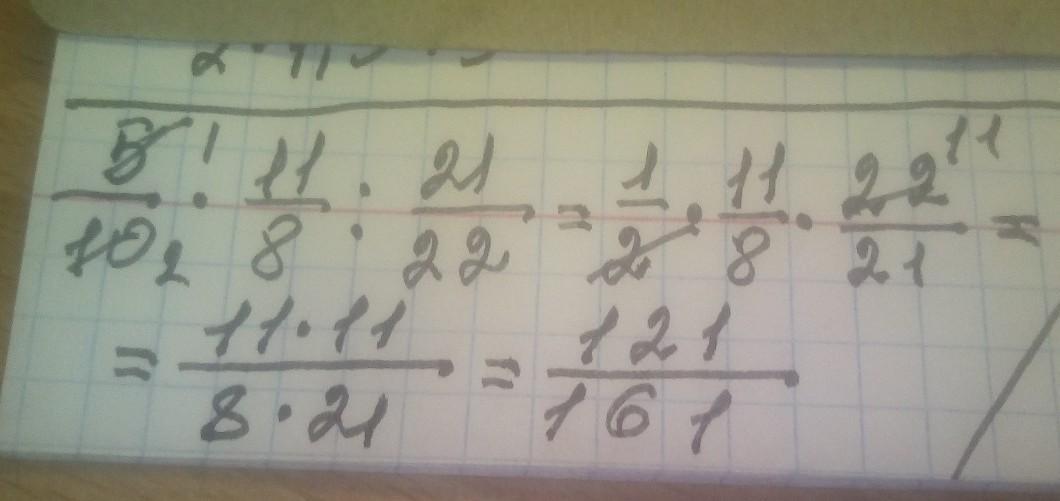 5/10 1 2 · 11/8 : 21/22 = 1/2 · 11/8 · 22/21 11 =
= 11·11/8·21 = 121/161